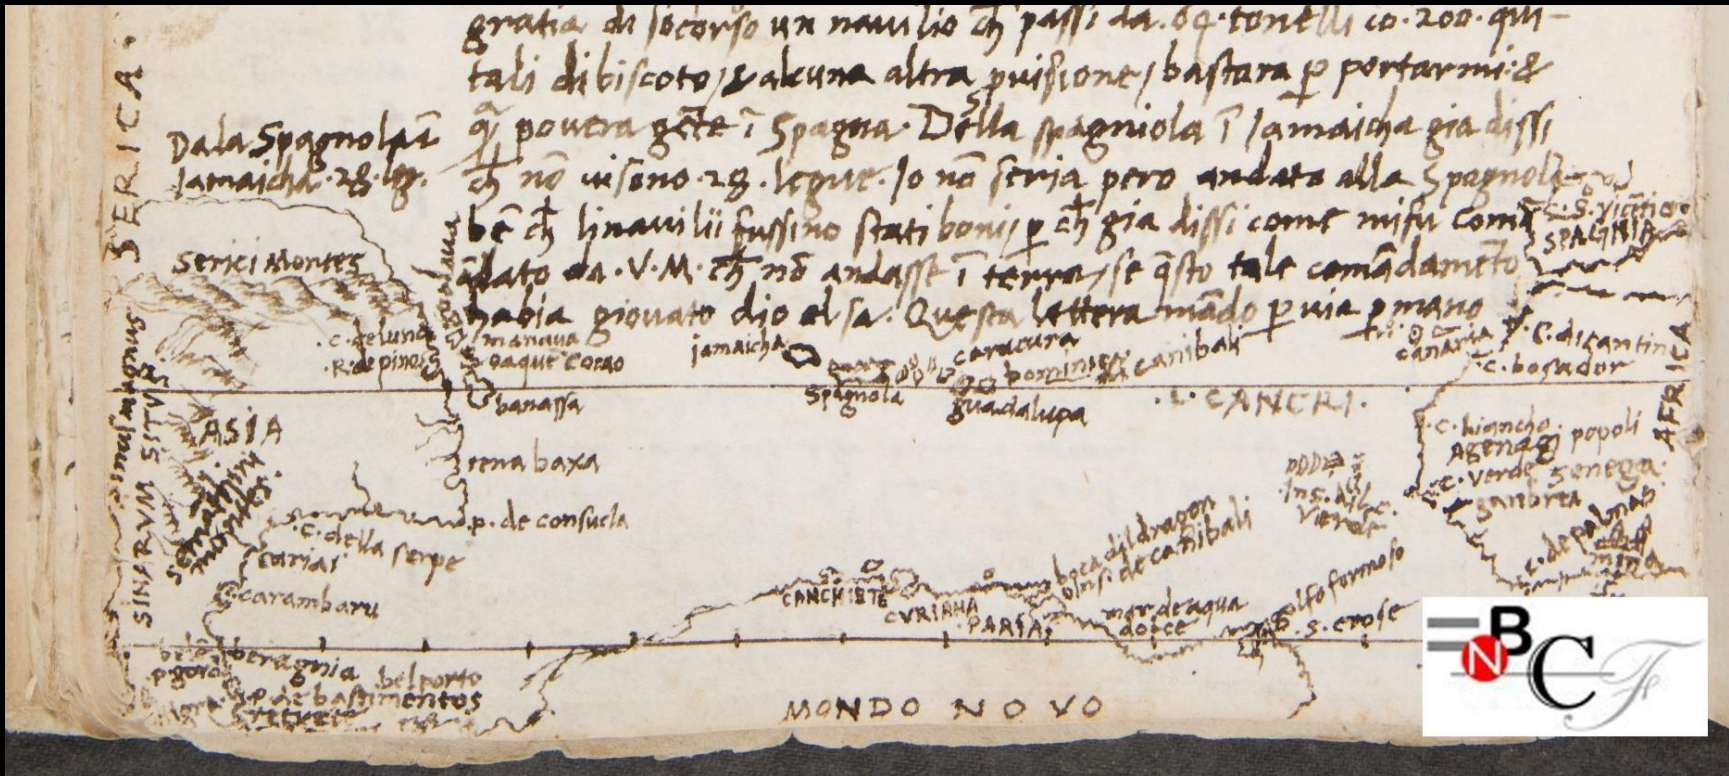 gratia di socorso un navilio ch̄ passi da .64. tonelli co .200. qui-
tali di biscoto, & alcuna altra p̱visione, bastara ꝑ portarmi: &
povera gēte ī Spagna. Della spagniola ī Iamaicha gia dissi
ch̄ nō vi sono .28. legue. Io nō seria pero andato alla Spagnola
bē ch̄ li navilii fussino stati boni, ꝑ ch̄ gia dissi come mi fu comā
dato da .V.M. ch̄ nō andasse ī terra, se q̄sto tale comādamēto
habia giovato dio el sa. Questa lettera mādo ꝑ via ꝑ mano
Da la Spagnola ī
Iamaicha .28. leg.
SERICA.
Serici Montes
.C. de luna
.R. de pinos
manava
cocao
banassa
ASIA
SINARVM SITVS
tena baxa
.p. de consuela
.C. della serpe
cariai
carambaru
beragnia
belporto
.p. de bastimentos
retrete
jamaicha
Spagnola
caracura
dominica
canibali
guadalupa
.L. CANCRI.
.C. S. Vicētio
SPAGNIA
canaria
.C. di cantin
.C. bosador
AFRICA
.C. biancho.
popoli
.C. verde
Senega
ganbrea
.C. de palmas
mina
Ins. dil .C.
Verde
boca dil dragon
insi de canibali
CANCHIETE
CVRIANA
.PARIA.
mar de aqua
dolce
golfo formoso
.S. crose
MONDO NOVO
NBCF